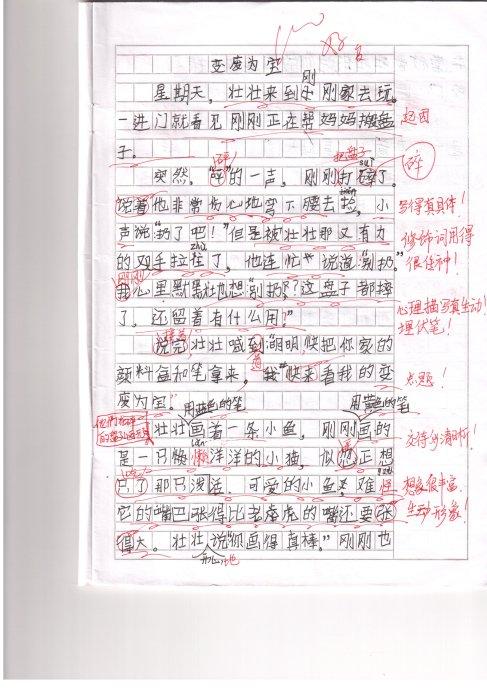 好
变废为宝
星期天，壮壮来到小刚家去玩。
刚
一进门就看见刚刚正在帮妈妈搬盘
起因
子。
碎
把盘子
突然，“碎”的一声，刚刚打碎了。
碎
说着他非常伤心地弯下腰去捡，小
写得真具体！
声说“扔了吧！”但是被壮壮那又有力
修饰词用得
的双手拉住了，他连忙说道“别扔。”
很传神！
刚刚
我心里默默壮也想“别扔？这盘子都摔
心理描写真生动！
了，还留着有什么用？”
埋伏笔！
说完壮壮喊到“明明，快把你家的
道
颜料盒和笔拿来，我快来看我的变
点题！
废为宝。”
用蓝色的笔
用黄色的笔
壮壮画着一条小鱼，刚刚画的
交待分清晰！
是一只懒洋洋的小猫，似乎正想
lǎn
只了那只泼活、可爱的小鱼，难怪
想象很丰富，
它的嘴巴张得比老虎的嘴还要张
生动形象！
得大。壮壮说“你画得真棒。”刚刚也
开心地